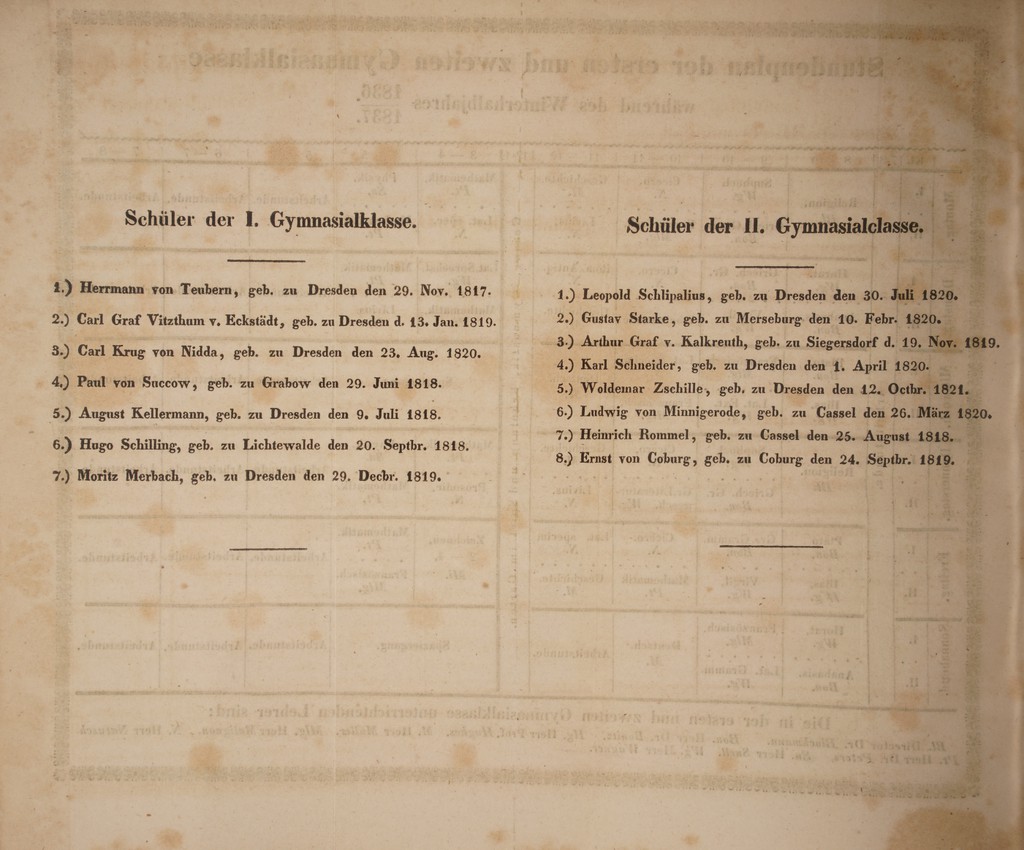 Schüler der I. Gymnasialklasse.
1.) Herrmann von Teubern, geb. zu Dresden den 29. Nov. 1817.
2.) Carl Graf Vitzthum v. Eckstädt, geb. zu Dresden d. 13. Jan. 1819.
3.) Carl Krug von Nidda, geb. zu Dresden den 23. Aug. 1820.
4.) Paul von Succow, geb. zu Grabow den 29. Juni 1818.
5.) August Kellermann, geb. zu Dresden den 9. Juli 1818.
6.) Hugo Schilling, geb. zu Lichtewalde den 20. Septbr. 1818.
7.) Moritz Merbach, geb. zu Dresden den 29. Decbr. 1819.
Schüler der II. Gymnasialclasse.
1.) Leopold Schlipalius, geb. zu Dresden den 30. Juli 1820.
2.) Gustav Starke, geb. zu Merseburg den 10. Febr. 1820.
3.) Arthur Graf v. Kalkreuth, geb. zu Siegersdorf d. 19. Nov. 1819.
4.) Karl Schneider, geb. zu Dresden den 1. April 1820.
5.) Woldemar Zschille, geb. zu Dresden den 12. Octbr. 1821.
6.) Ludwig von Minnigerode, geb. zu Cassel den 26. März 1820.
7.) Heinrich Rommel, geb. zu Cassel den 25. August 1818.
8.) Ernst von Coburg, geb. zu Coburg den 24. Septbr. 1819.